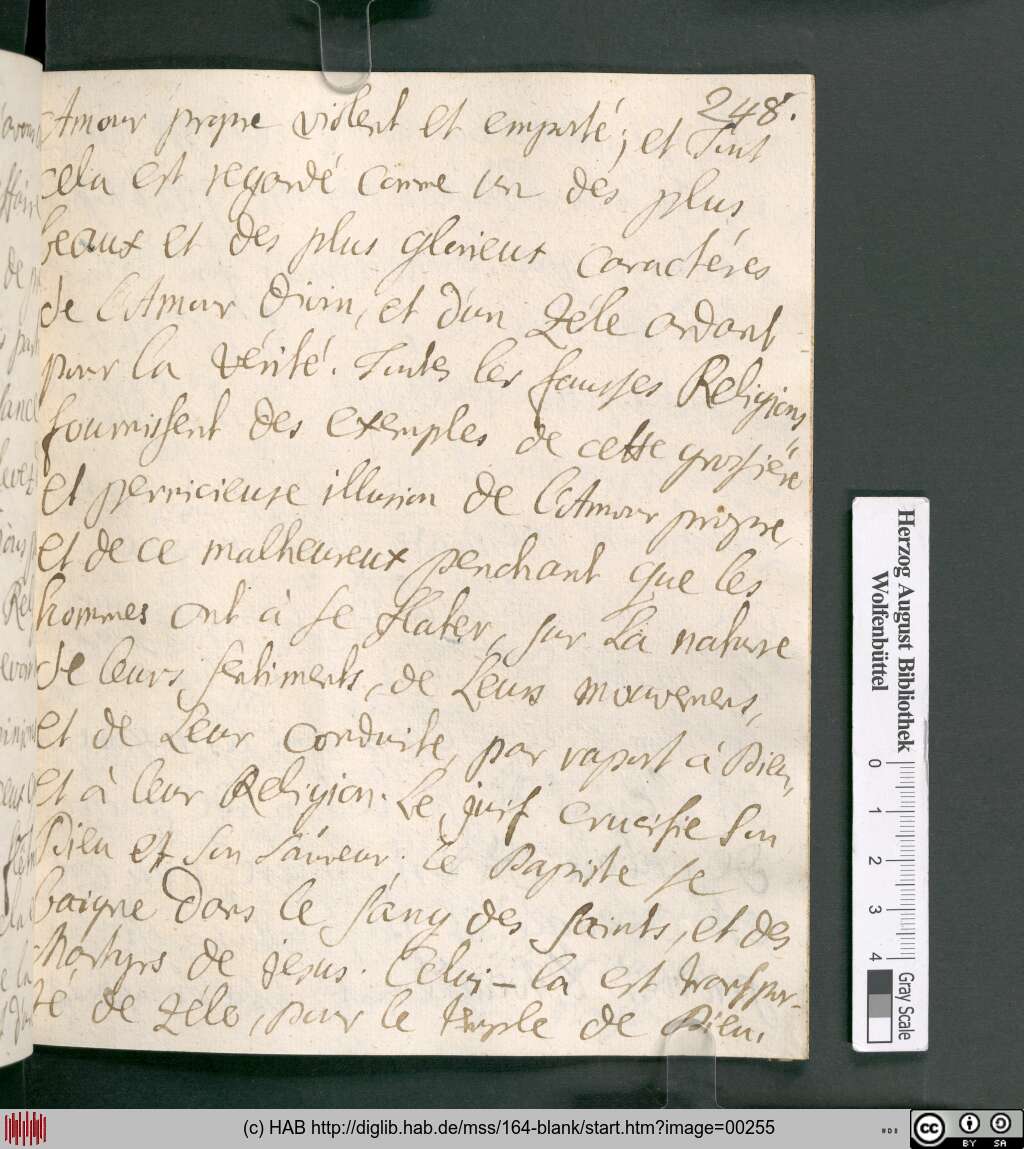 248.
Amour propre violent et emporté; et tout
cela est regardé comme un des plus
beaux et des plus glorieux caractéres
de l'Amour Divin, et d'un Zéle ardant
pour la vérité. Toutes les fausses Religions
fournissent des exemples de cette grossiére
et pernicieuse illusion de l'Amour propre,
et de ce malheureux penchant que les
hommes ont à se flater, sur la nature
de leurs sentiments, de leurs mouvemens,
et de leur conduite, par raport à Dieu,
et à leur Religion. Le juif crucifie son
Dieu et son Sauveur; le Papiste se
baigne dans le sang des saints, et des
Martyrs de jesus. Celui-la est transpor-
té de Zéle, pour le temple de Dieu.
Herzog August Bibliothek
Wolfenbüttel
0 1 2 3 4
Gray Scale
(c) HAB http://diglib.hab.de/mss/164-blank/start.htm?image=00255
cc BY SA